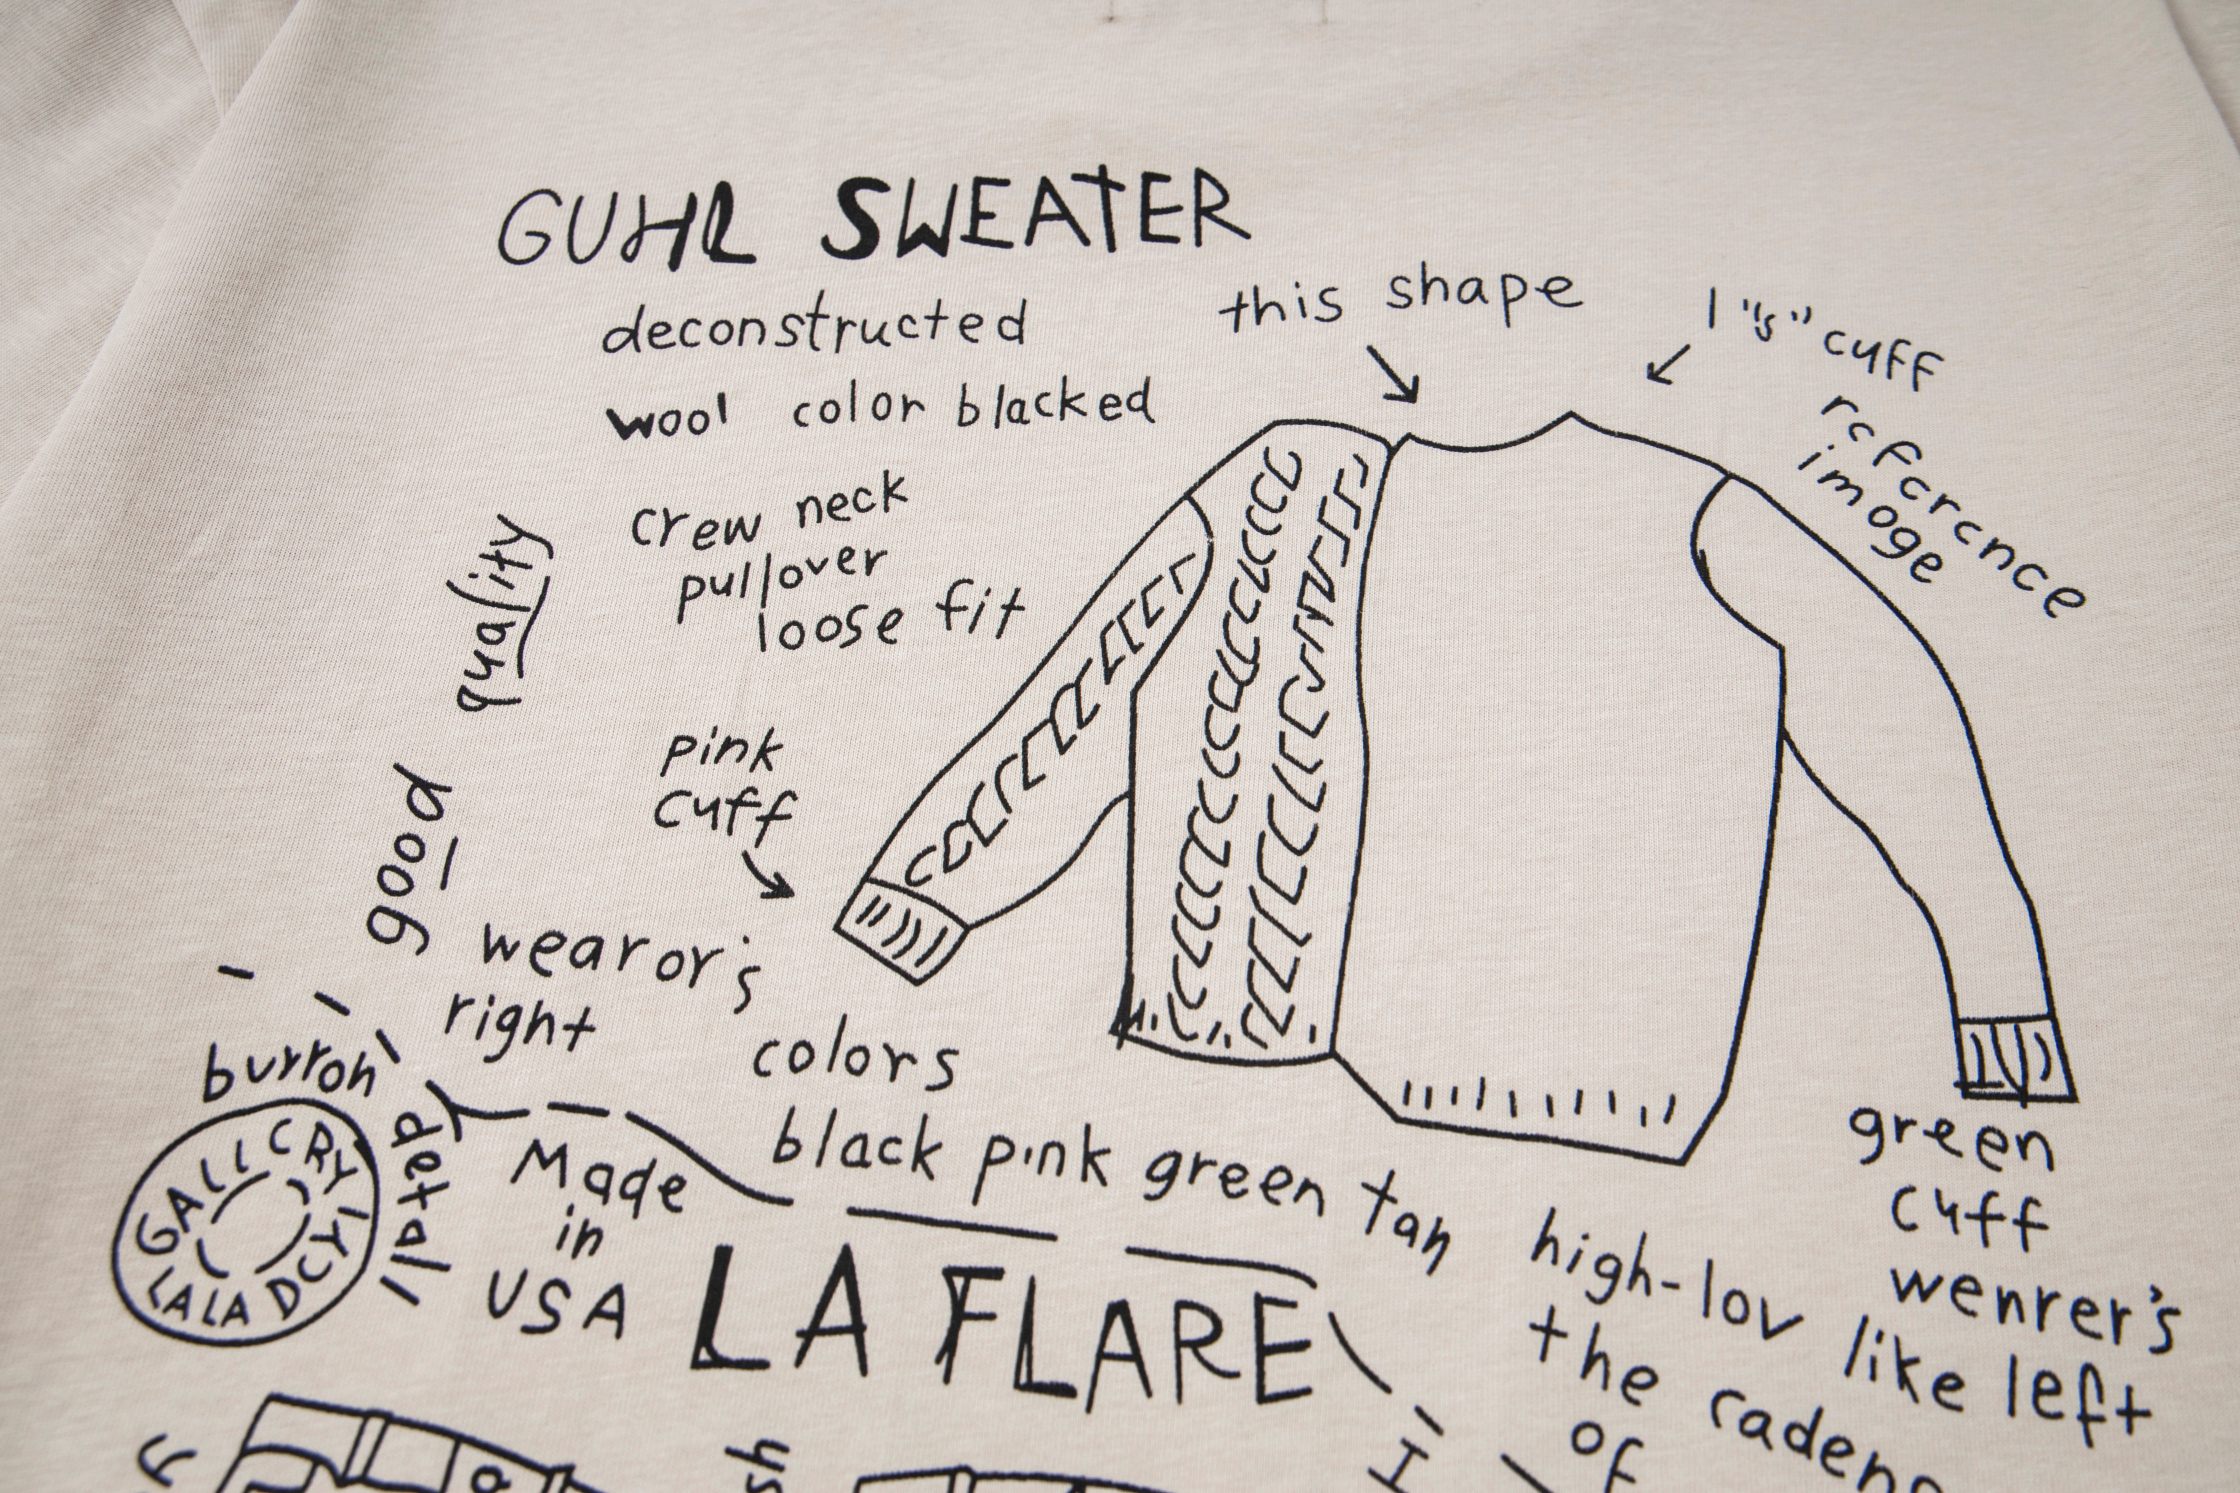 GUHL SWEATER
deconstructed
wool color blacked
this shape
1 "s" cuff
rcfcrcnce
imoge
crew neck
pullover
loose fit
good quality
pink
cuff
wearor's
right
colors
black pink green tan
burron
detail
GALLCRY
LALA DCYI
Made
in
USA
LA FLARE
green
cuff
wenrer's
left
high-lov like
the cadenc
of
I